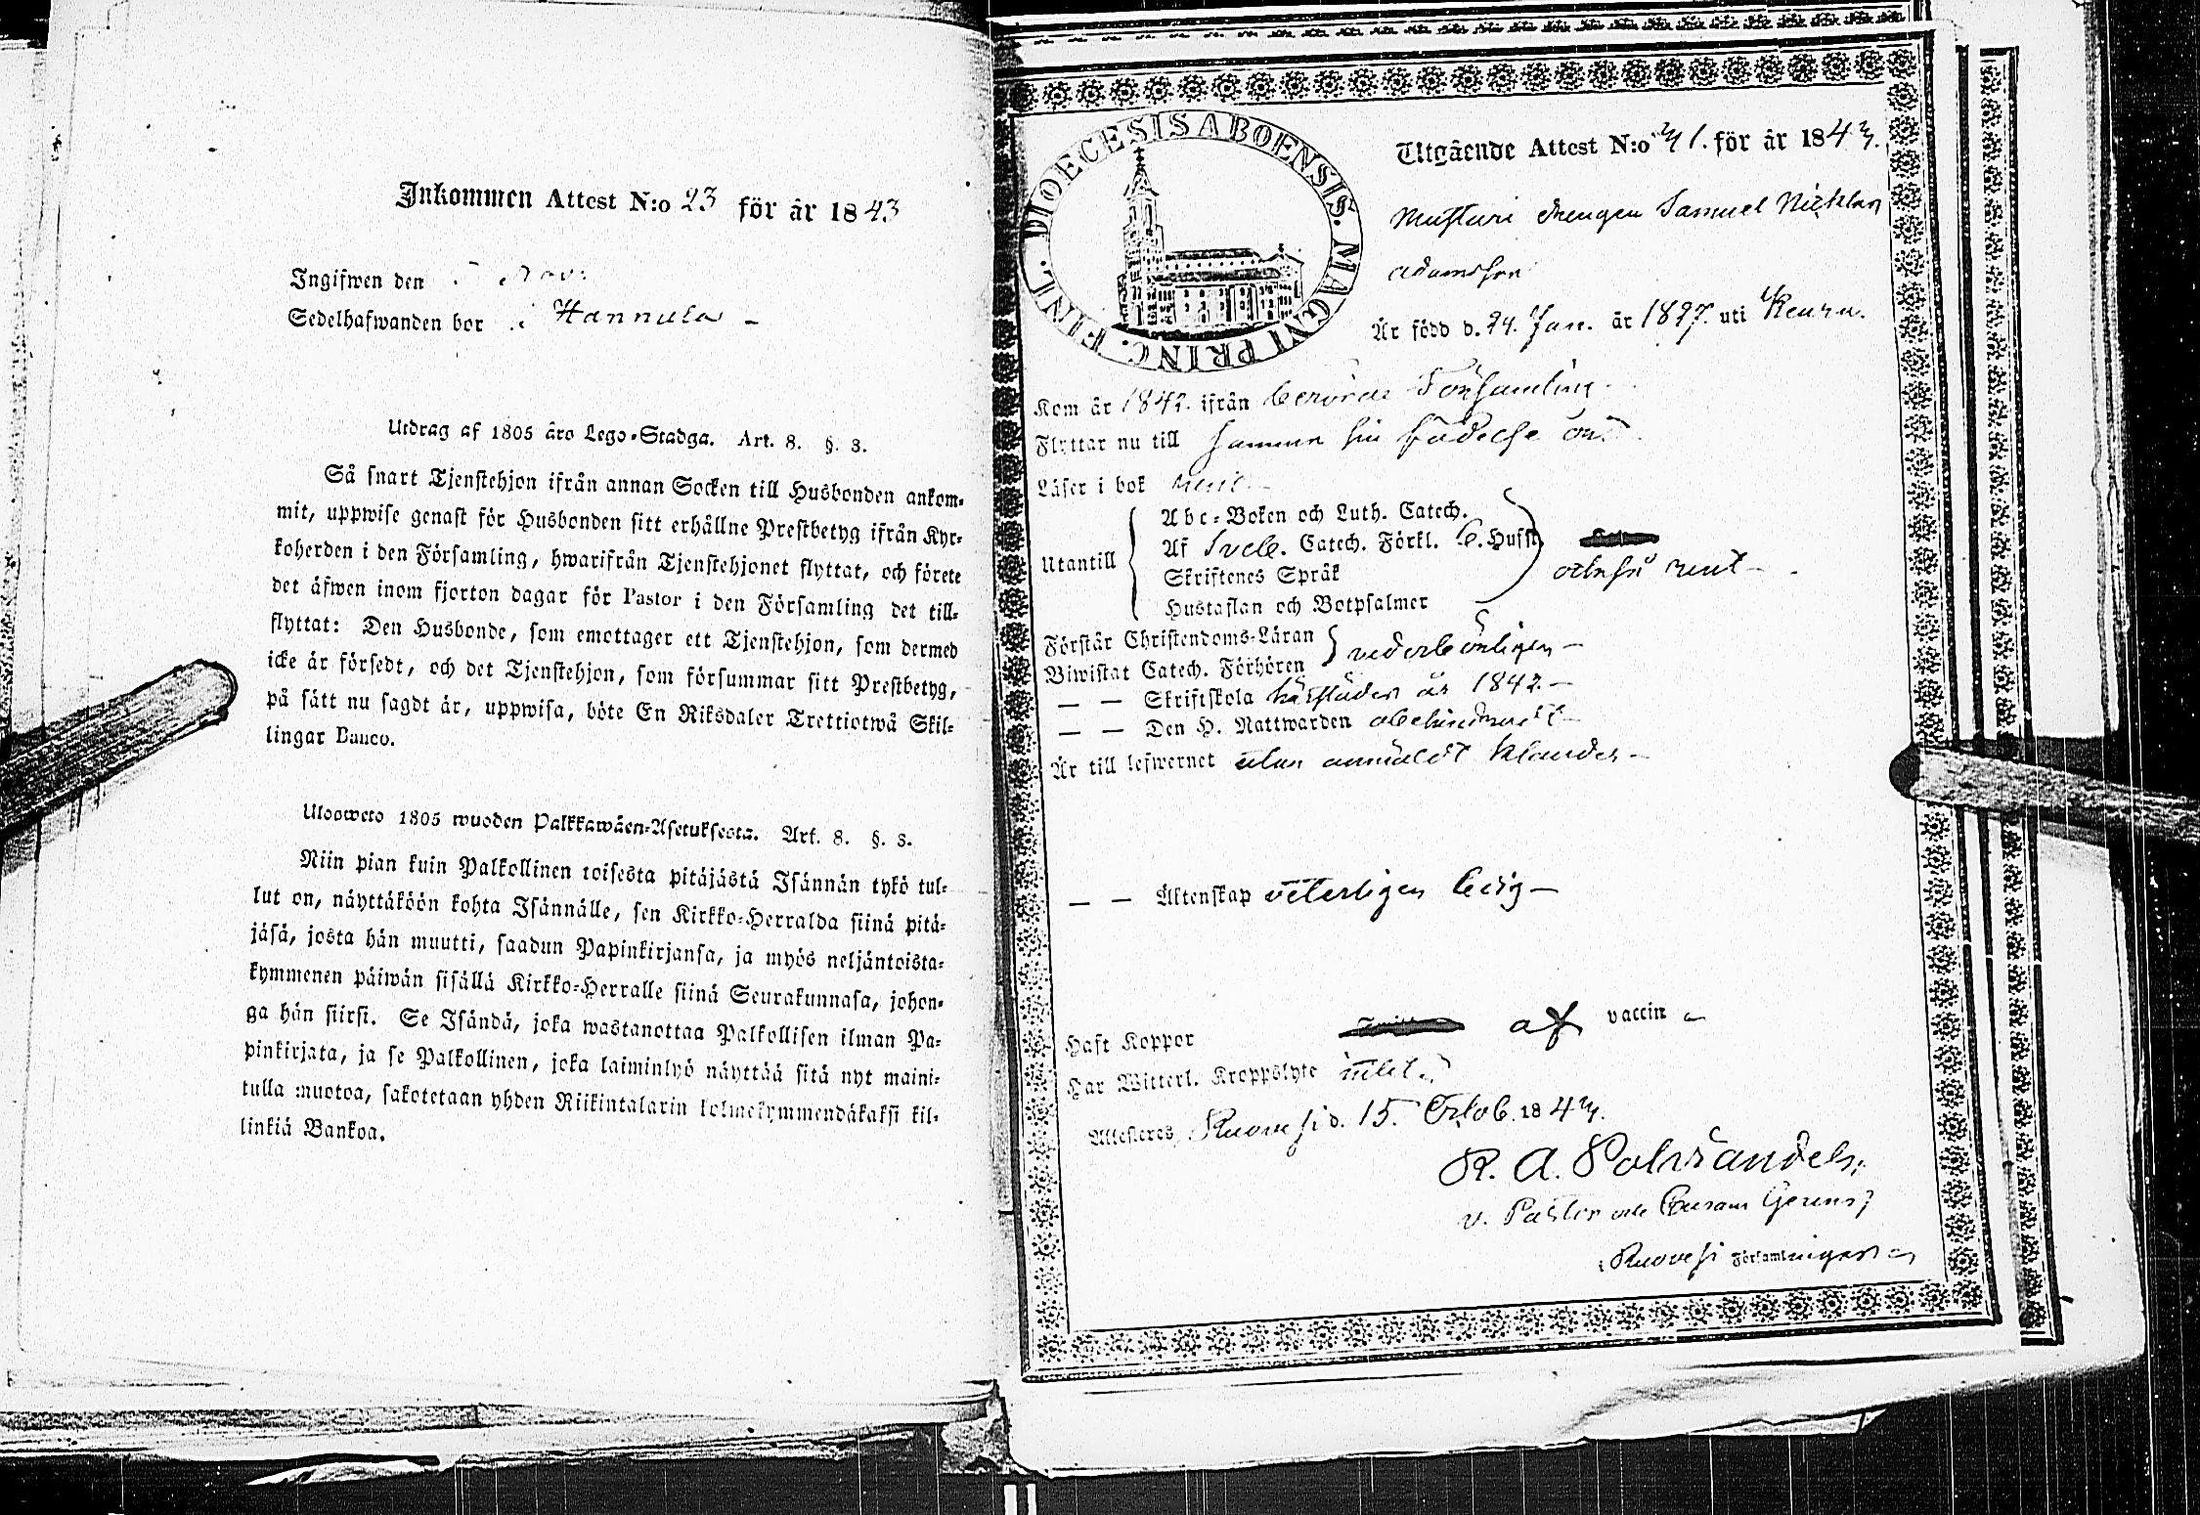 Inkommen Attest N:o 23 för år 1843
Ingifwen den Nov:
Sedelhafwanden bor i Hannula –
Utdrag af 1805 års Lego-Stadga. Art. 8. §. 3.
Så snart Tjenstehjon ifrån annan Socken till Husbonden ankom-
mit, uppwise genast för Husbonden sitt erhållne Prestbetyg ifrån Kyr-
koherden i den Församling, hwarifrån Tjenstehjonet flyttat, och förete
det äfwen inom fjorton dagar för Pastor i den Församling det till-
flyttat: Den Husbonde, som emottager ett Tjenstehjon, som dermed
icke är försedt, och det Tjenstehjon, som försummar sitt Prestbetyg,
på sätt nu sagdt är, uppwisa, böte En Riksdaler Trettiotwå Skil-
lingar Banco.
Uloosweto 1805 wuoden Palkkawäen-Asetuksesta. Art. 8. §. 3.
Niin pian kuin Palkollinen toisesta pitäjästä Isännän tykö tul-
lut on, näyttäköön kohta Isännälle, sen Kirkko-Herralda siinä pitä-
jäsä, josta hän muutti, saadun Papinkirjansa, ja myös neljäntoista-
kymmenen päiwän sisällä Kirkko-Herralle siinä Seurakunnasa, johon-
ga hän siirsi. Se Isändä, joka wastanottaa Palkollisen ilman Pa-
pinkirjata, ja se Palkollinen, joka laiminlyö näyttää sitä nyt maini-
tulla muotoa, sakotetaan yhden Riikintalarin kolmekymmendäkaksi kil-
linkiä Bankoa.
DIOECESIS ABOENSIS. MAGNI PRINC. FINL.
Utgående Attest N:o 41. för år 1843.
Mustari drengen Samuel Nicklas
Adamsson
Är född d. 24. Jan. år 1827. uti Keuru.
Kom år 1842. ifrån berörde Församling
Flyttar nu till samma sin födelse ort
Läser i bok rent
Utantill
Abc-Boken och Luth. Catech.
Af Sveb. Catech. Förkl. C. Husfl.
Skriftenes Språk
Hustaflan och Botpsalmer
också rent –
Förstår Christendoms-Läran
Biwistat Catech. Förhören
vederbörligen –
— — Skriftskola härstädes år 1842. –
— — Den H. Nattwarden obehindradt –
Är till lefwernet utan anmäldt klander –
— — Äktenskap veterligen ledig –
Haft Koppor af vaccin
Har Witterl. Kroppslyte intet
Attesteras, Ruovesi d. 15. Octob. 1843.
R. A.
v. Pastor
i Ruovesi Församlingar